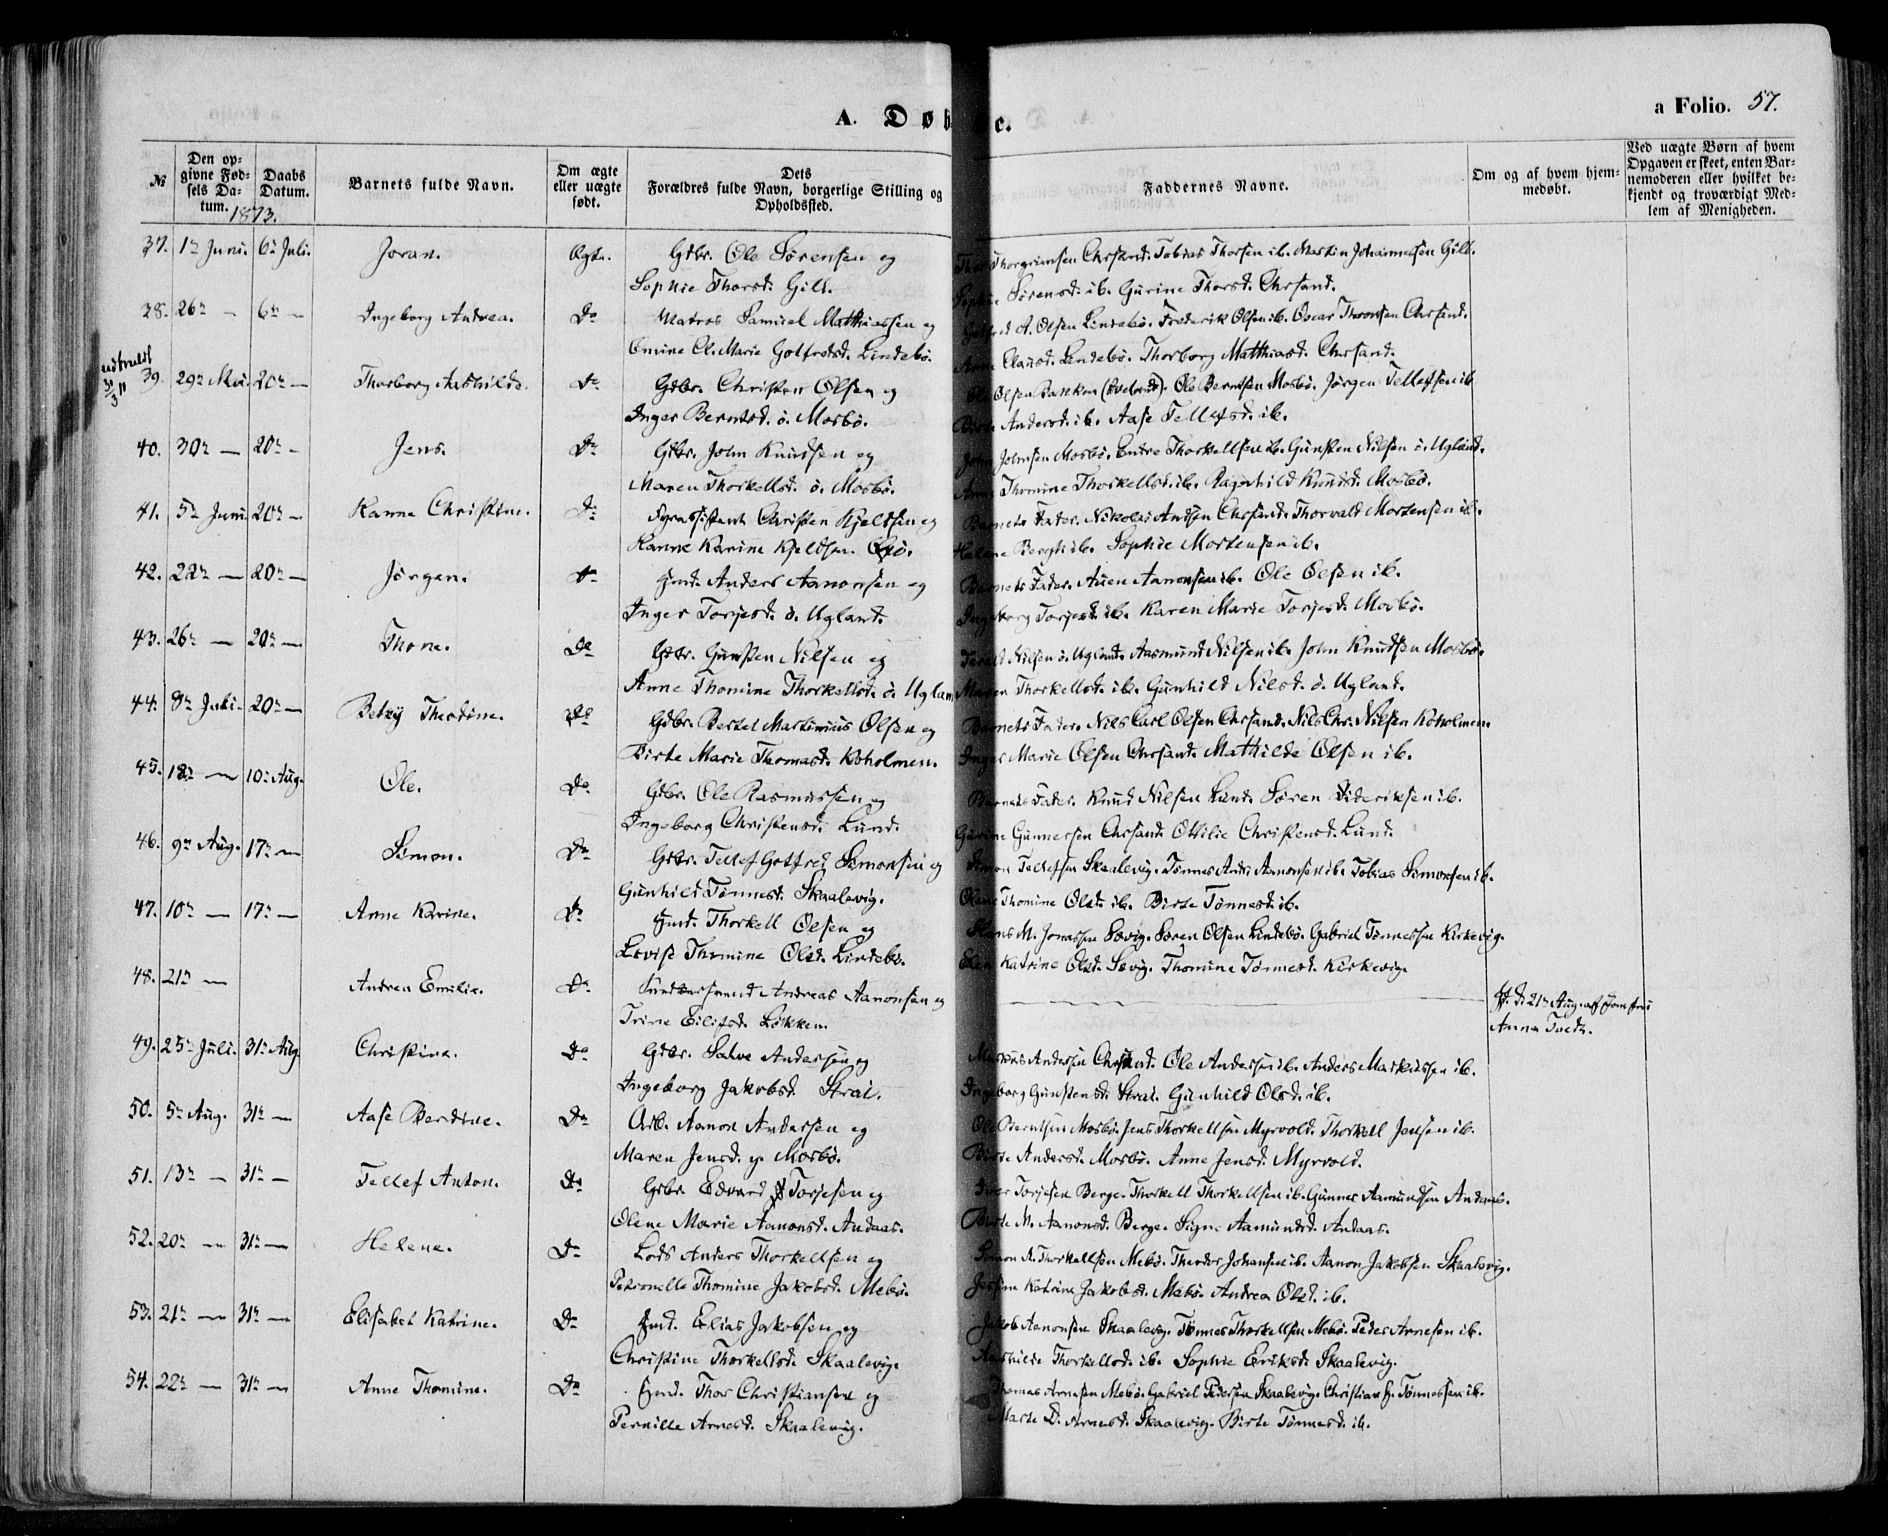 A. Døb c.
a Folio. 57.
№
Den op-
givne Fød-
sels Da-
tum.
Daabs
Datum.
Barnets fulde Navn.
Om ægte
eller uægte
født.
Dets
Forældres fulde Navn, borgerlige Stilling og
Opholdssted.
Faddernes Navne.
Om og af hvem hjem-
medøbt.
Ved uægte Børn af hvem
Opgaven er skeet, enten Bar-
nemoderen eller hvilket be-
kjendt og troværdigt Med-
lem af Menigheden.
1873.
37. 1ste Juni. 6te Juli. Joran. Ægte. Gdbr. Ole Sørensen og Thorgrimsen Chrsand. Tobias Thorsen ib. Martin Johannesen Gill.
Sophie Thorsd. Gill. Sørensd. ib. Gurine Thorsd. Chrsand.
38. 26de — 6te — Ingeborg Andrea. Do Matros Samuel Matthiassen og A. Olsen Lindebø. Frederik Olsen ib. Oscar Thorsen Chrsand.
Omine El. Marie Gotfredsd. Lindebø. Clausd. Lindebø. Thorborg Matthiasd. Chrsand.
39. 29de Mai. 20de — Thorborg Aashilde. Do Gdbr. Christen Olsen og Olsen Ole Berntsen Mosbø. Jørgen Tellefsen ib.
31/3 11
Inger Berntsd. ø. Mosbø. Andersd. ib. Aase Tellefsd. ib.
40. 30te — 20de — Jens. Do Gdbr. John Knudsen og John Johnsen Mosbø. Endre Thorkellsen ib. Gunsten Nilsen ø. Ugland.
Maren Thorkellsd. ø. Mosbø. Anne Thomine Thorkellsd. ib. Ragnhild Knudsd. Mosbø.
41. 5te Juni 20de — Hanna Christine. Do Fyrassistent Christen Kjeldsen og Barnets Fader. Nikolai Andsen Chrsand. Thorvald Mortensen ib.
Hanne Karine Kjeldsen. Oxø. Helene Bergh ib. Sophie Mortensen ib.
42. 22de — 20de — Jørgen. Do Anders Aanonsen og Barnets Fader. Auen Aanonsen ib. Ole Olsen ib.
Inger Torjesd. ø. Ugland. Ingeborg Torjesd. ib. Karen Marie Torjesd. Mosbø.
43. 26de — 20de — Thone. Do Gdbr. Gunsten Nilsen og Nilsen ø. Ugland. Aasmund Nilsen ib. John Knudsen Mosbø.
Anne Thomine Thorkellsd. ø. Ugland Maren Thorkellsd. ib. Gunhild Nilsd. ø. Ugland.
44. 8de Juli. 20de — Betzy Theodine. Do Gdbr. Bertel Martinius Olsen og Barnets Fader. Nils Carl Olsen Chrsand. Nils Chr. Nilsen Koholmen.
Birte Marie Thomasd. Koholmen. Inger Marie Olsen Chrsand. Mathilde Olsen ib.
45. 18de — 10de Aug. Ole. Do Gdbr. Ole Rasmussen og Barnets Fader. Knud Nilsen Lund. Søren Dideriksen ib.
Ingeborg Christensd. Lund. Gurine Gunnersen Chrsand. Ottilie Christensd. Lund.
46. 9de Aug. 17de — Simon. Do Gdbr. Tellef Gotfred Simonsen og Simon Tellefsen Skaalevig. Tønnes Andr. Aanonsen ib. Tobias Simonsen ib.
Gunhild Tønnesd. Skaalevig. Olene Thomine Olsd. ib. Birte Tønnesd. ib.
47. 10de — 17de — Anne Karine. Do Thorkell Olsen og Hans M. Jonassen Søvig. Søren Olsen Lindebø. Gabriel Tønnessen Kirkevig.
Lovise Thomine Olsd. Lindebø. Katrine Olsd. Søvig. Thomine Tønnesd. Kirkevig.
48. 21de — Andrea Emilie. Do Andreas Aanonsen og — Hj. d. 21de Aug. af Jomfru
Trine Eilifsd. Løkken. Anna
49. 25de Juli. 31te Aug. Christine. Do Gdbr. Salve Andersen og Markus Andersen Chrsand. Ole Andersen ib. Anders Markussen ib.
Ingeborg Jakobsd. Strai. Ingeborg Gunstensd. Strai. Gunhild Olsd. ib.
50. 5te Aug. 31te — Aase Berdine. Do Arb. Aanon Andersen og Ole Berntsen Mosbø. Jens Thorkellsen Myrvold. Thorkell Jensen ib.
Maren Jensd. y. Mosbø. Birte Andersd. Mosbø. Anne Jensd. Myrvold.
51. 13de — 31te — Tellef Anton. Do Gdbr. Edvard Torjesen og Iver Torjesen Berge. Thorkell Thorkellsen ib. Gunner Aamundsen Andaas.
Olene Marie Aanonsd. Andaas. Birte M. Aanonsd. Berge. Signe Aamundsd. Andaas.
52. 20de — 31te — Helene. Do Lods Anders Thorkellsen og Simon A. Thorkellsen Mebø. Theodor Johansen ib. Aanon Jakobsen Skaalevig.
Petronelle Thomine Jakobsd. Mebø. Jensine Katrine Jakobsd. Mebø. Andrea Olsd. ib.
53. 21de — 31te — Elisabet Katrine. Do Elias Jakobsen og Jakob Aanonsen Skaalevig. Tønnes Thorkellsen Mebø. Peder Arnesen ib.
Christine Thorkellsd. Skaalevig. Aashilde Thorkellsd. ib. Sophie Eriksd. Skaalevig.
54. 22de — 31te — Anne Thomine. Do Thor Christiansen og Thomas Arnesen Mebø. Gabriel Pedersen Skaalevig. Christian G. Tønnessen ib.
Pernille Arnesd. Skaalevig. Marte D. Arnesd. Skaalevig. Birte Tønnesd. ib.